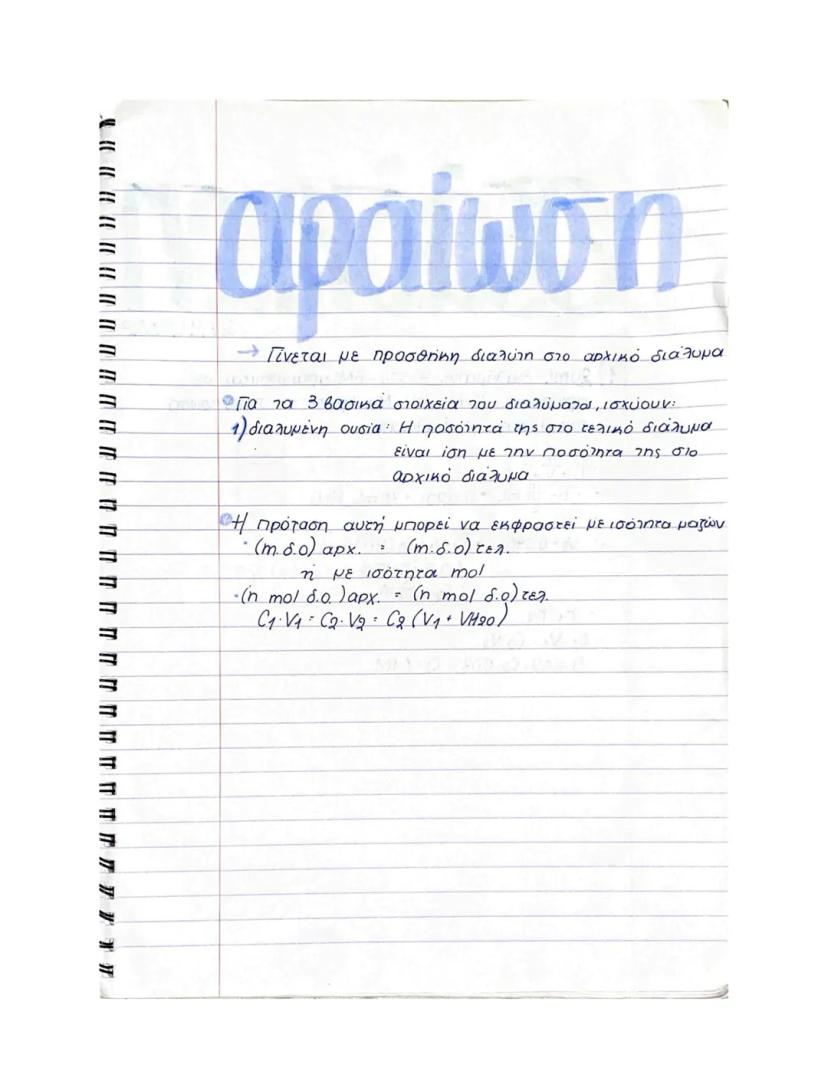 αραίωση
→ Γίνεται με προσθήκη διαλύτη στο αρχικό διάλυμα
Για τα 3 βασικά στοιχεία του διαλύματος, ισχύουν:
1) διαλυμένη ουσία: Η ποσότητά της στο τελικό διάλυμα
είναι ίση με την ποσότητα της στο
αρχικό διάλυμα
Η πρόταση αυτή μπορεί να εκφραστεί με ισότητα μαζών
• (m.δ.ο) αρχ. = (m.δ.ο) τελ.
ή με ισότητα mol
• (n mol δ.ο.) αρχ. = (n mol δ.ο) τελ.
C1·V1 = C2·V2 = C2 (V1 + VH2O)